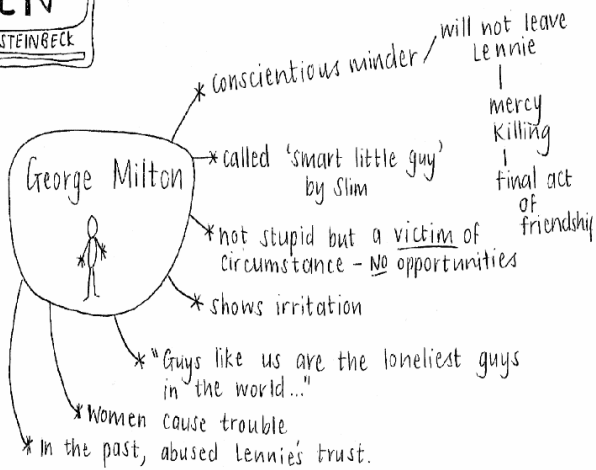 EN
STEINBECK
George Milton
* conscientious minder
will not leave
Lennie
mercy
killing
final act
of
friendship
* called 'smart little guy'
by Slim
* not stupid but a victim of
circumstance - NO opportunities
* shows irritation
* "Guys like us are the loneliest guys
in the world..."
* Women cause trouble
* In the past, abused Lennie's trust.